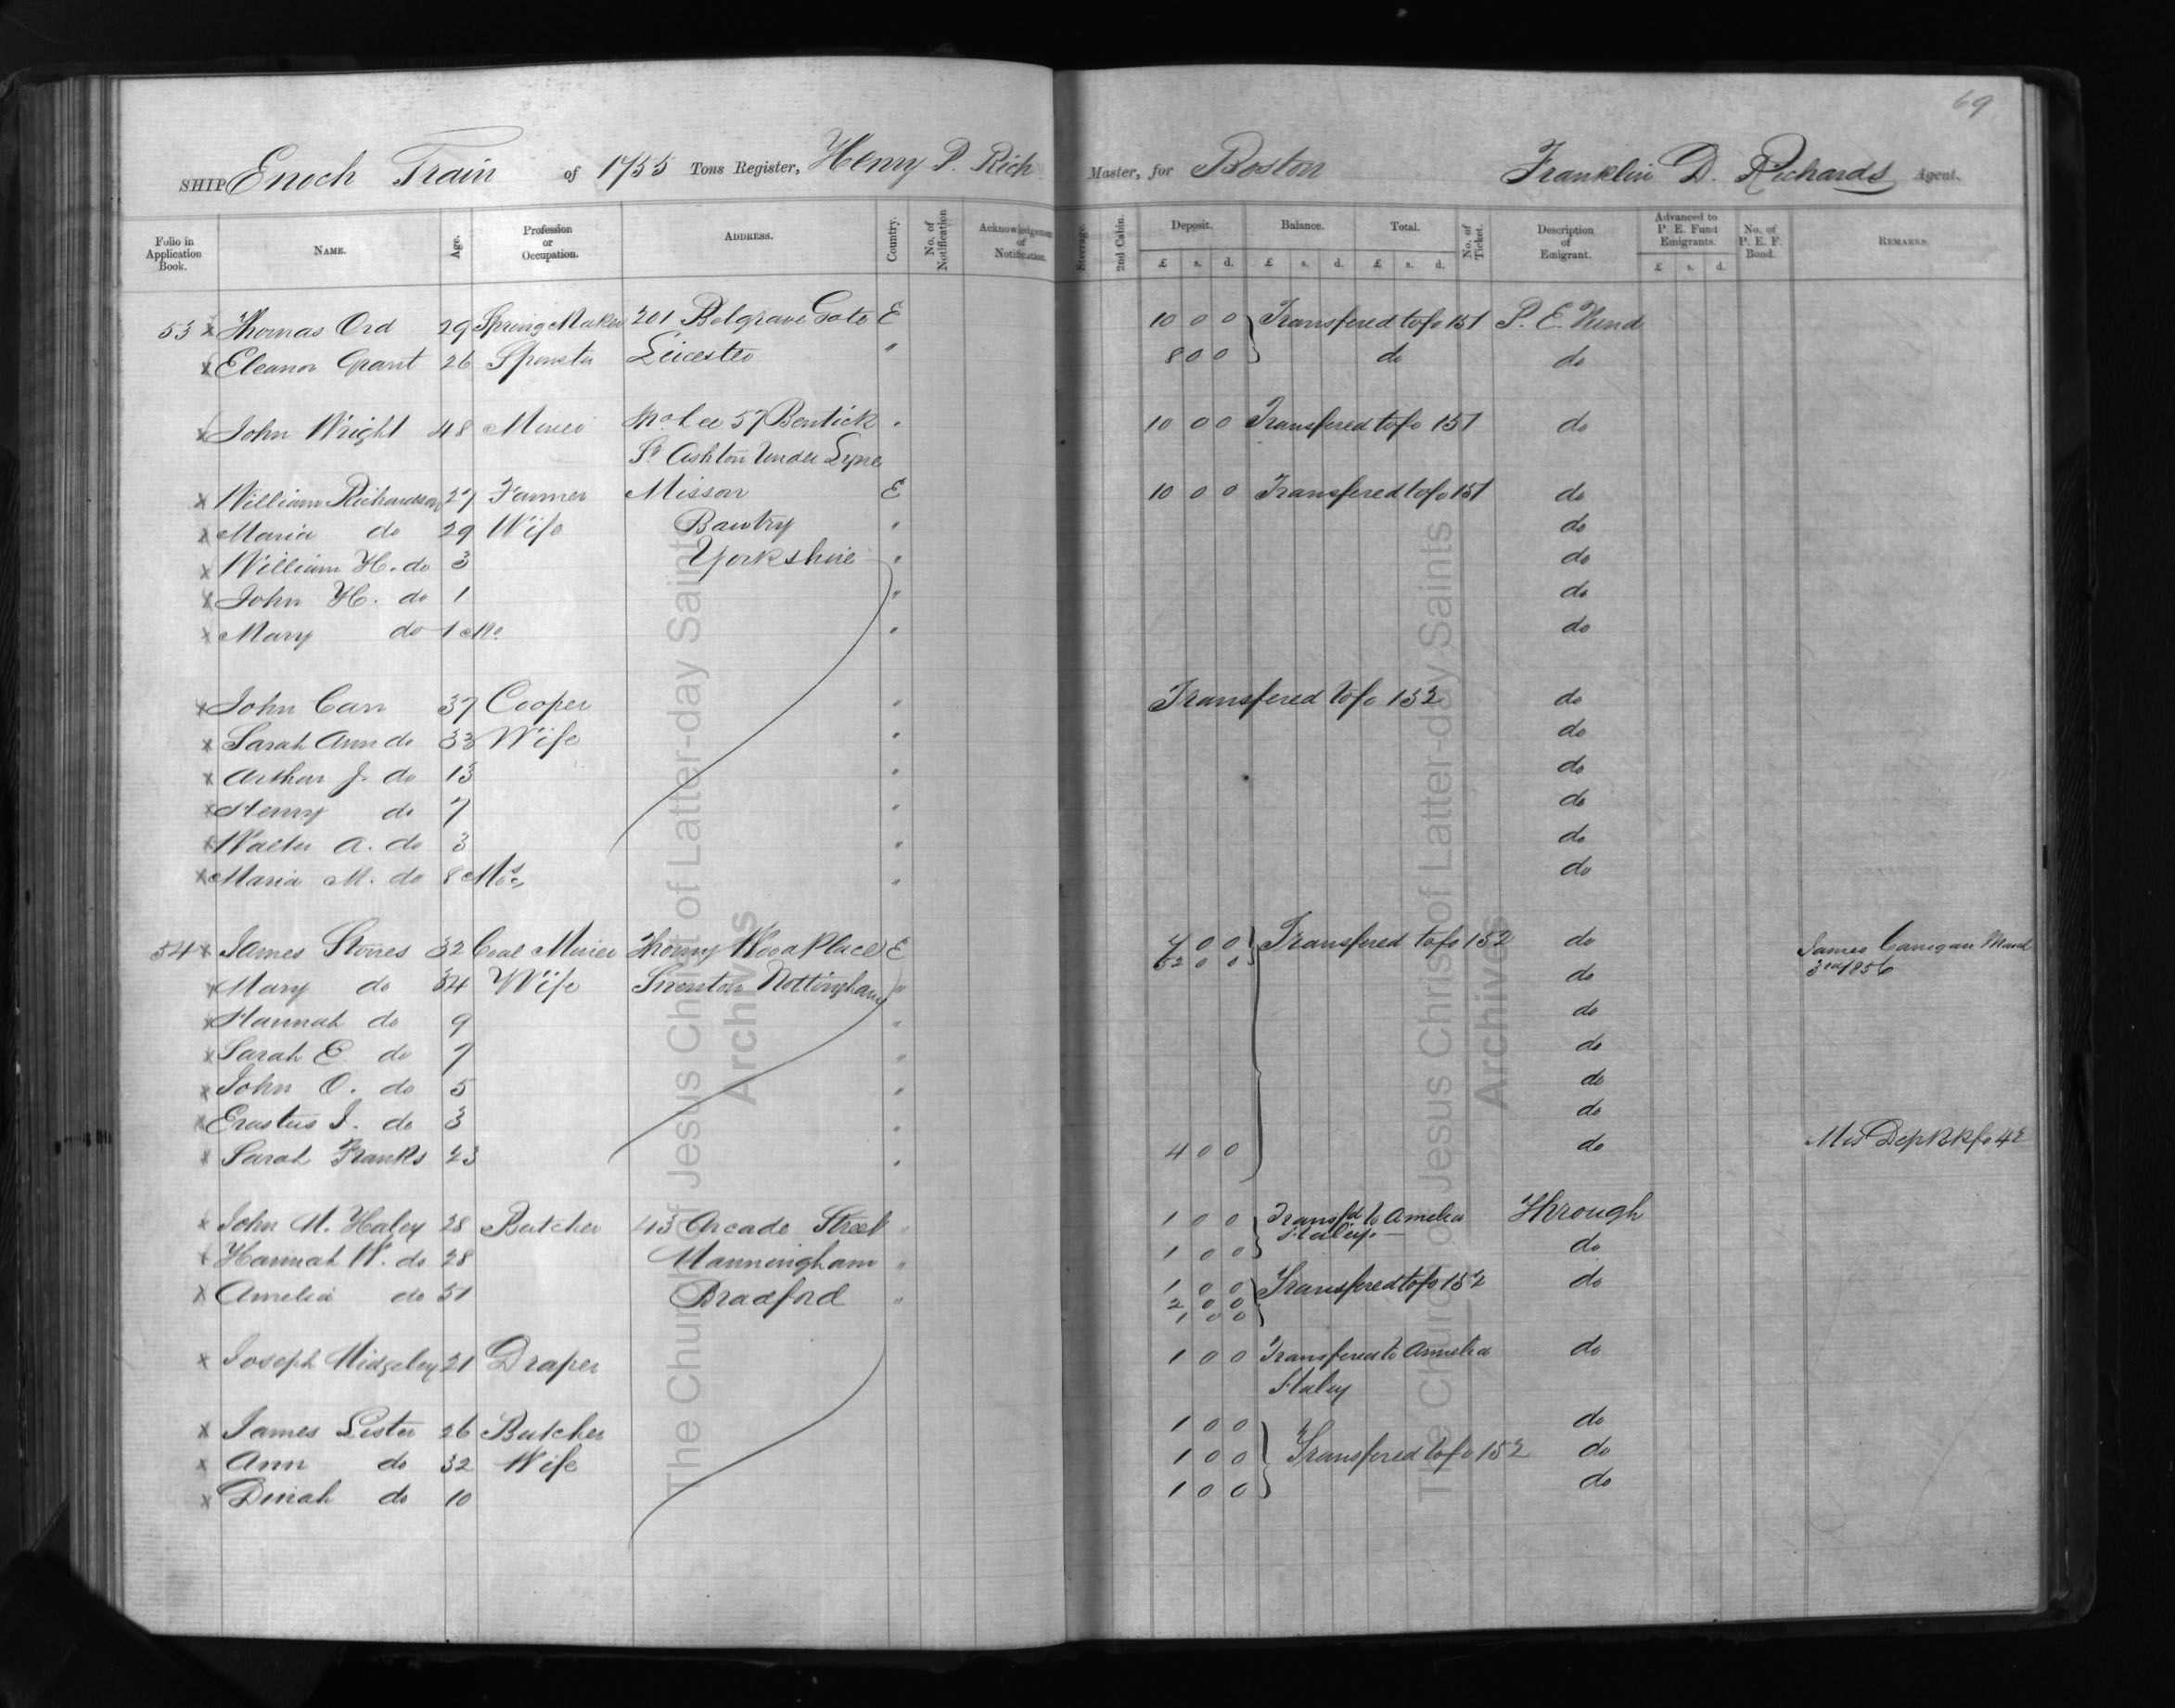 69
SHIP Enoch Train of 1755 Tons Register, Henry P. Rich Master, for Boston Franklin D. Richards Agent.
Folio in Application Book. NAME. Age. Profession or Occupation. ADDRESS. Country. No. of Notification Acknowledgement of Notification. Steerage. 2nd Cabin. Deposit. £ s. d. Balance. £ s. d. Total. £ s. d. No. of Ticket. Description of Emigrant. Advanced to P. E. Fund Emigrants. £ s. d. No. of P. E. F. Bond. REMARKS.
53 x Thomas Ord 29 Spring Maker 201 Belgrave Gate E 10 0 0 Transfered to fo 151 P. E. Fund
x Eleanor Grant 26 Spinster Leicester " 8 0 0 do do
x John Wright 48 Miner 57 Bentick " 10 0 0 Transfered to fo 151 do
St Ashton Under Lyne
x William Richardson 27 Farmer Misson E 10 0 0 Transfered to fo 151 do
x Maria do 29 Wife Bawtry " do
x William H. do 3 Yorkshire " do
x John H. do 1 " do
x Mary do 1 Mo. " do
x John Carr 37 Cooper " Transfered to fo 152 do
x Sarah Ann do 33 Wife " do
x Arthur J. do 13 " do
x Henry do 7 " do
x Walter A. do 3 " do
x Maria M. do 8 Mos " do
54 x James Stones 32 Coal Miner Thorny Wood Place E 7 0 0 Transfered to fo 152 do James
52 0 0
x Mary do 34 Wife Snenton Nottingham " do 3rd 1856
x Hannah do 9 " do
x Sarah E. do 7 " do
x John O. do 5 " do
x Erastus I. do 3 " do
x Sarah Franks 23 " 4 0 0 do Dep Bk fo 42
x John M. Haley 28 Butcher 43 Arcade Street " 1 0 0 Transfd to Amelia Through
Haley. —
x Hannah W. do 28 Manningham " 1 0 0 do
x Amelia do 51 Bradford " 1 0 0 Transfered to fo 152 do
2 0 0
1 0 0
x Joseph Midgeley 21 Draper 1 0 0 Transfered to Amelia do
Haley
x James Lister 26 Butcher 1 0 0 do
x Ann do 32 Wife 1 0 0 Transfered to fo 152 do
x Dinah do 10 1 0 0 do
The Church of Jesus Christ of Latter-day Saints
Archives
The Church of Jesus Christ of Latter-day Saints
Archives